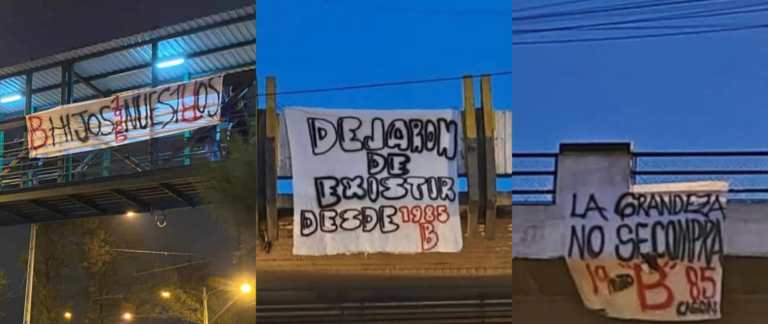 B HIJOS NUESTROS
DEJARON
DE
EXISTIR
DESDE 1985
B
LA GRANDEZA
NO SE COMPRA
19 "B" 85
CAGON